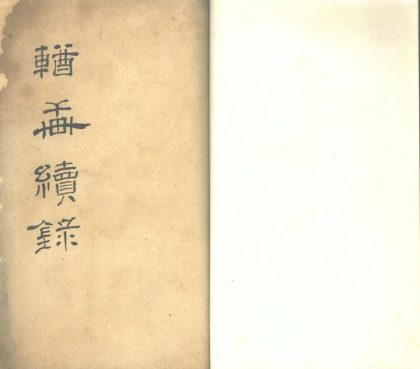 輶軒續錄